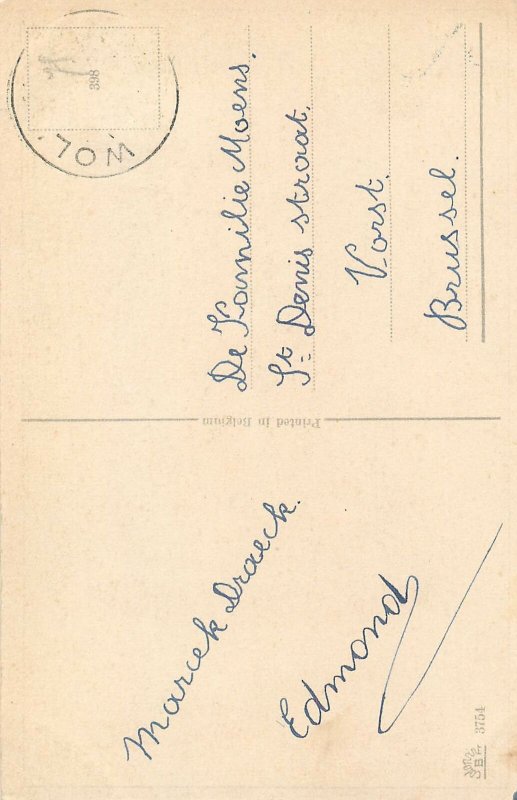 Marcek Draeck.
Edmond
3754
Printed in Belgium
398
MOL
De Familie Moens.
St Denis straat.
Vorst.
Brussel.